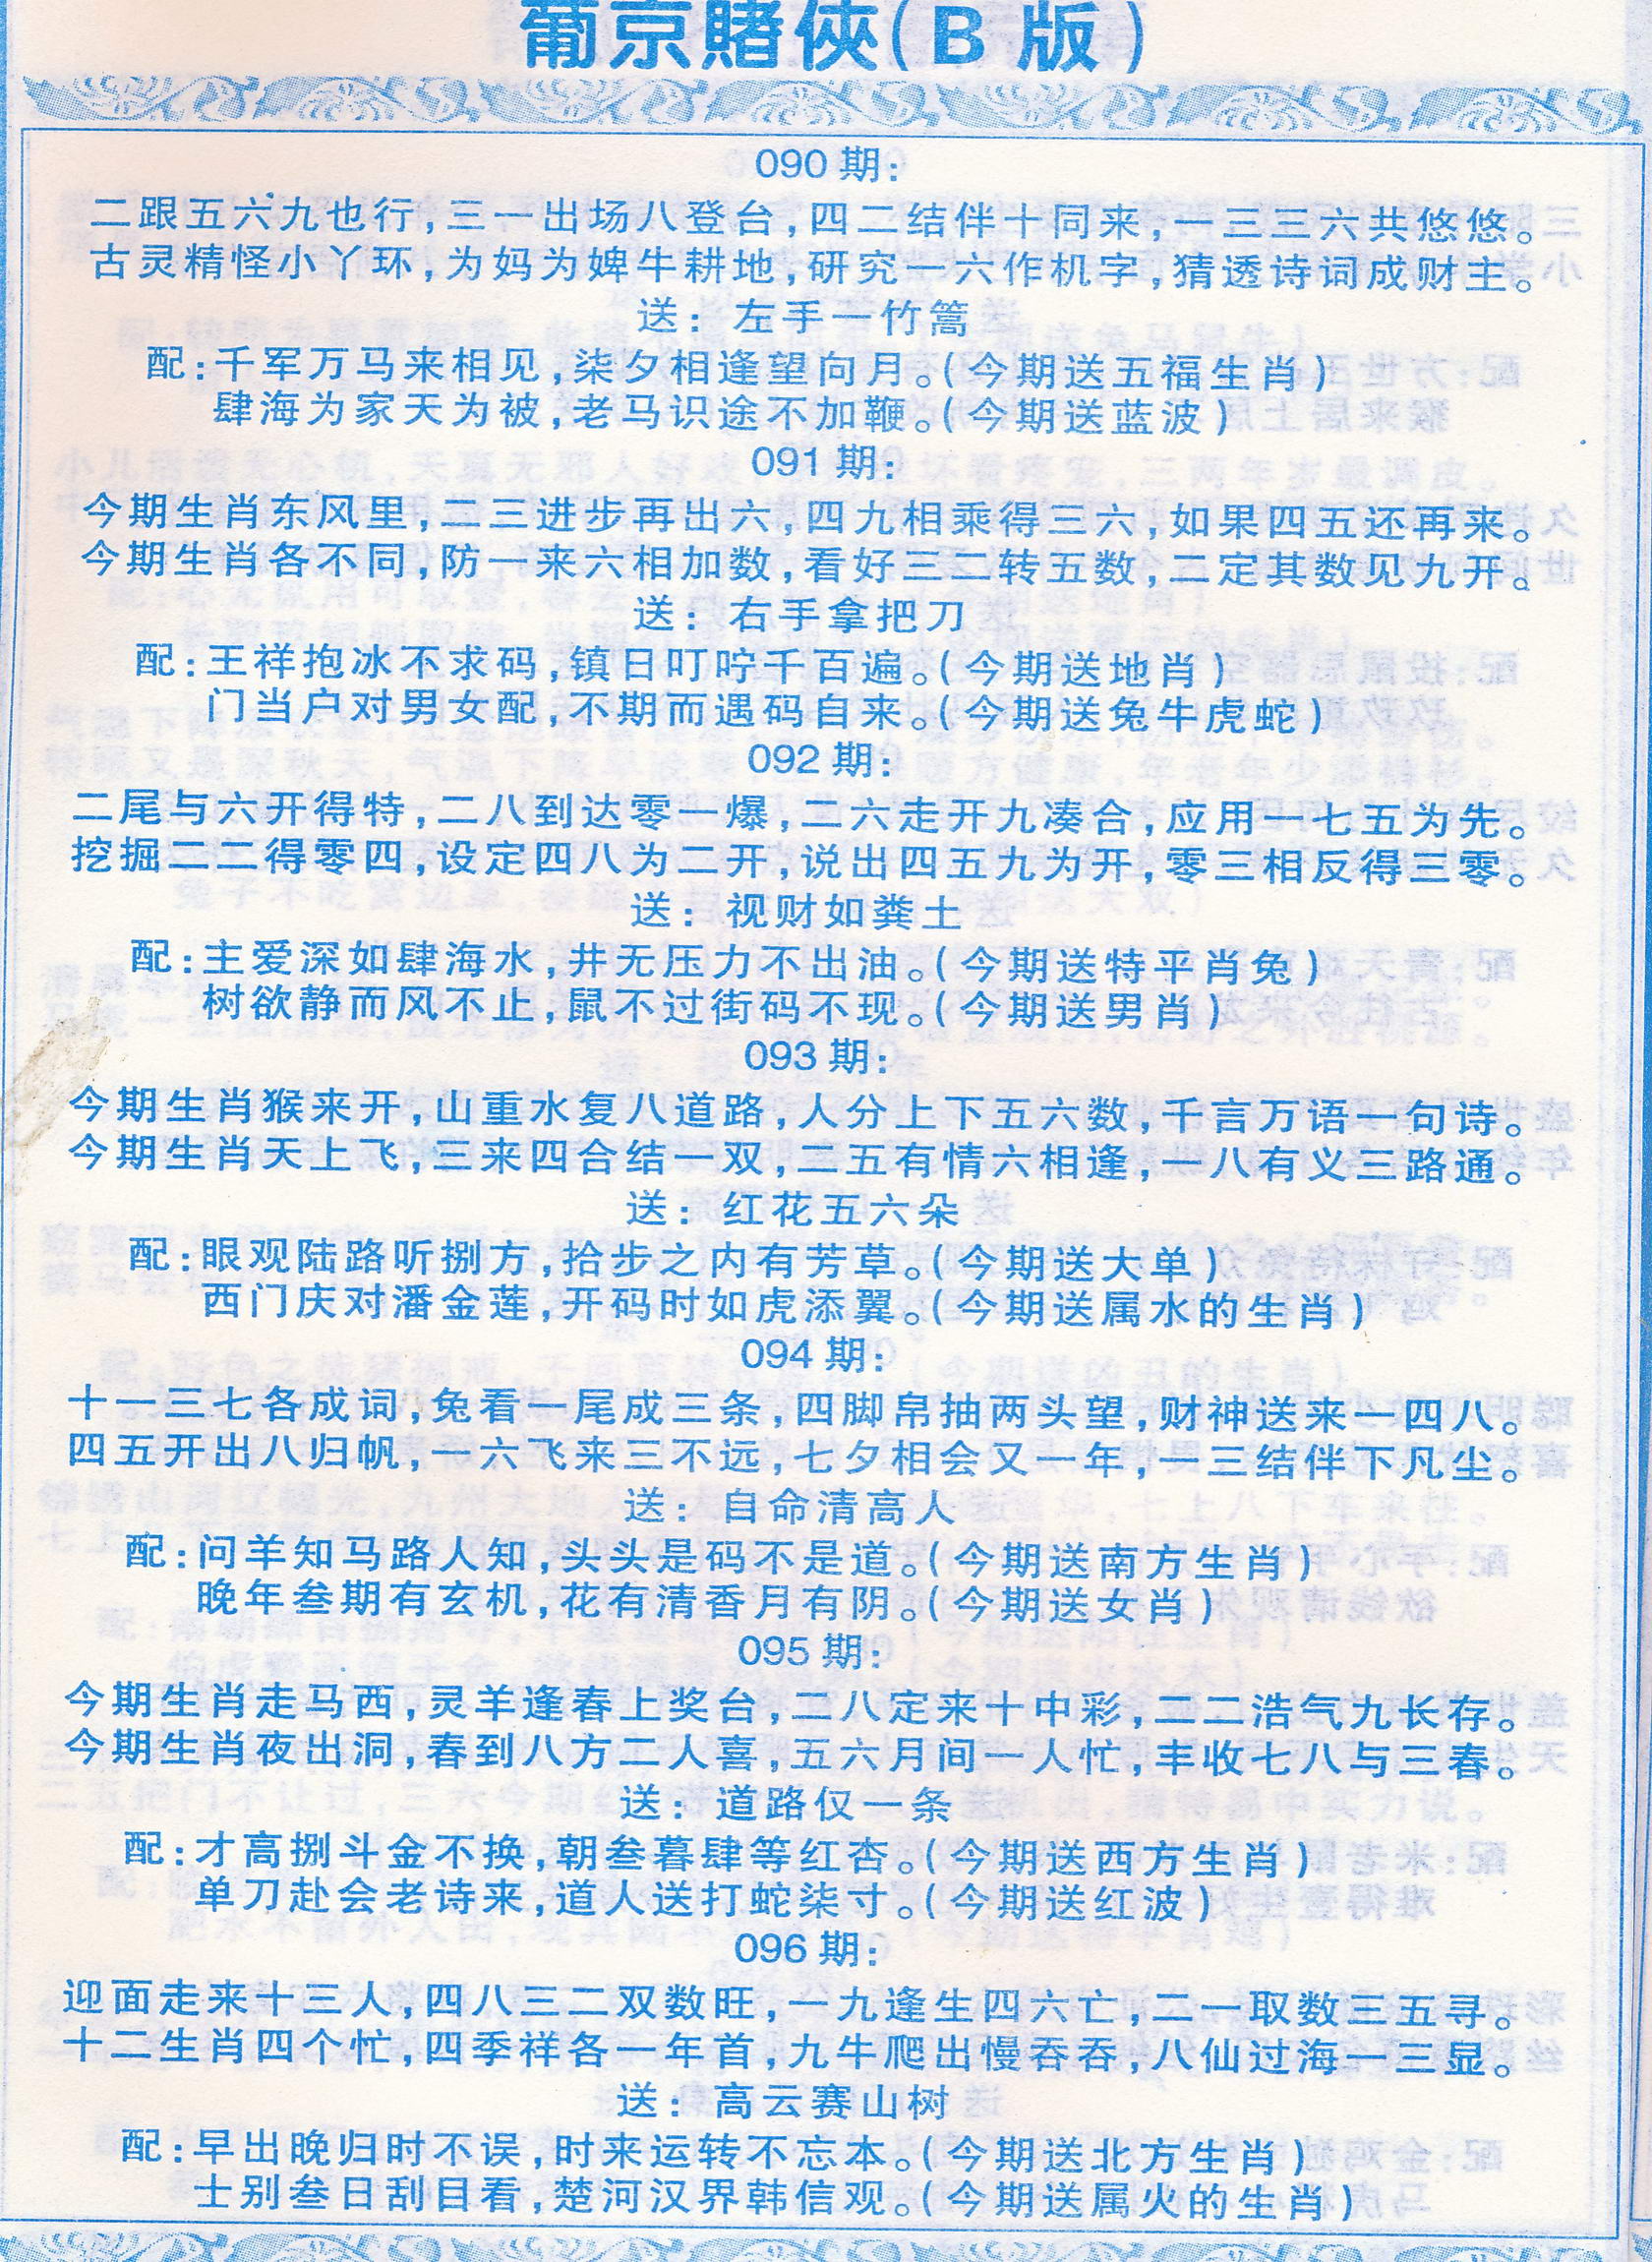 葡京賭俠(B 版)
090 期:
二跟五六九也行,三一出场八登台,四二结伴十同来,一三三六共悠悠。
古灵精怪小丫环,为妈为婢牛耕地,研究一六作机字,猜透诗词成财主。
送: 左手一竹篙
配:千军万马来相见,柒夕相逢望向月。(今期送五福生肖)
肆海为家天为被,老马识途不加鞭。(今期送蓝波)
091 期:
今期生肖东风里,二三进步再出六,四九相乘得三六,如果四五还再来。
今期生肖各不同,防一来六相加数,看好三二转五数,二定其数见九开。
送: 右手拿把刀
配:王祥抱冰不求码,镇日叮咛千百遍。(今期送地肖)
门当户对男女配,不期而遇码自来。(今期送兔牛虎蛇)
092 期:
二尾与六开得特,二八到达零一爆,二六走开九凑合,应用一七五为先。
挖掘二二得零四,设定四八为二开,说出四五九为开,零三相反得三零。
送: 视财如粪土
配:主爱深如肆海水,井无压力不出油。(今期送特平肖兔)
树欲静而风不止,鼠不过街码不现。(今期送男肖)
093 期:
今期生肖猴来开,山重水复八道路,人分上下五六数,千言万语一句诗。
今期生肖天上飞,三来四合结一双,二五有情六相逢,一八有义三路通。
送: 红花五六朵
配:眼观陆路听捌方,拾步之内有芳草。(今期送大单)
西门庆对潘金莲,开码时如虎添翼。(今期送属水的生肖)
094 期:
十一三七各成词,兔看一尾成三条,四脚帛抽两头望,财神送来一四八。
四五开出八归帆,一六飞来三不远,七夕相会又一年,一三结伴下凡尘。
送: 自命清高人
配:问羊知马路人知,头头是码不是道。(今期送南方生肖)
晚年叁期有玄机,花有清香月有阴。(今期送女肖)
095 期:
今期生肖走马西,灵羊逢春上奖台,二八定来十中彩,二二浩气九长存。
今期生肖夜出洞,春到八方二人喜,五六月间一人忙,丰收七八与三春。
送: 道路仅一条
配:才高捌斗金不换,朝叁暮肆等红杏。(今期送西方生肖)
单刀赴会老诗来,道人送打蛇柒寸。(今期送红波)
096 期:
迎面走来十三人,四八三二双数旺,一九逢生四六亡,二一取数三五寻。
十二生肖四个忙,四季祥各一年首,九牛爬出慢吞吞,八仙过海一三显。
送: 高云赛山树
配:早出晚归时不误,时来运转不忘本。(今期送北方生肖)
士别叁日刮目看,楚河汉界韩信观。(今期送属火的生肖)